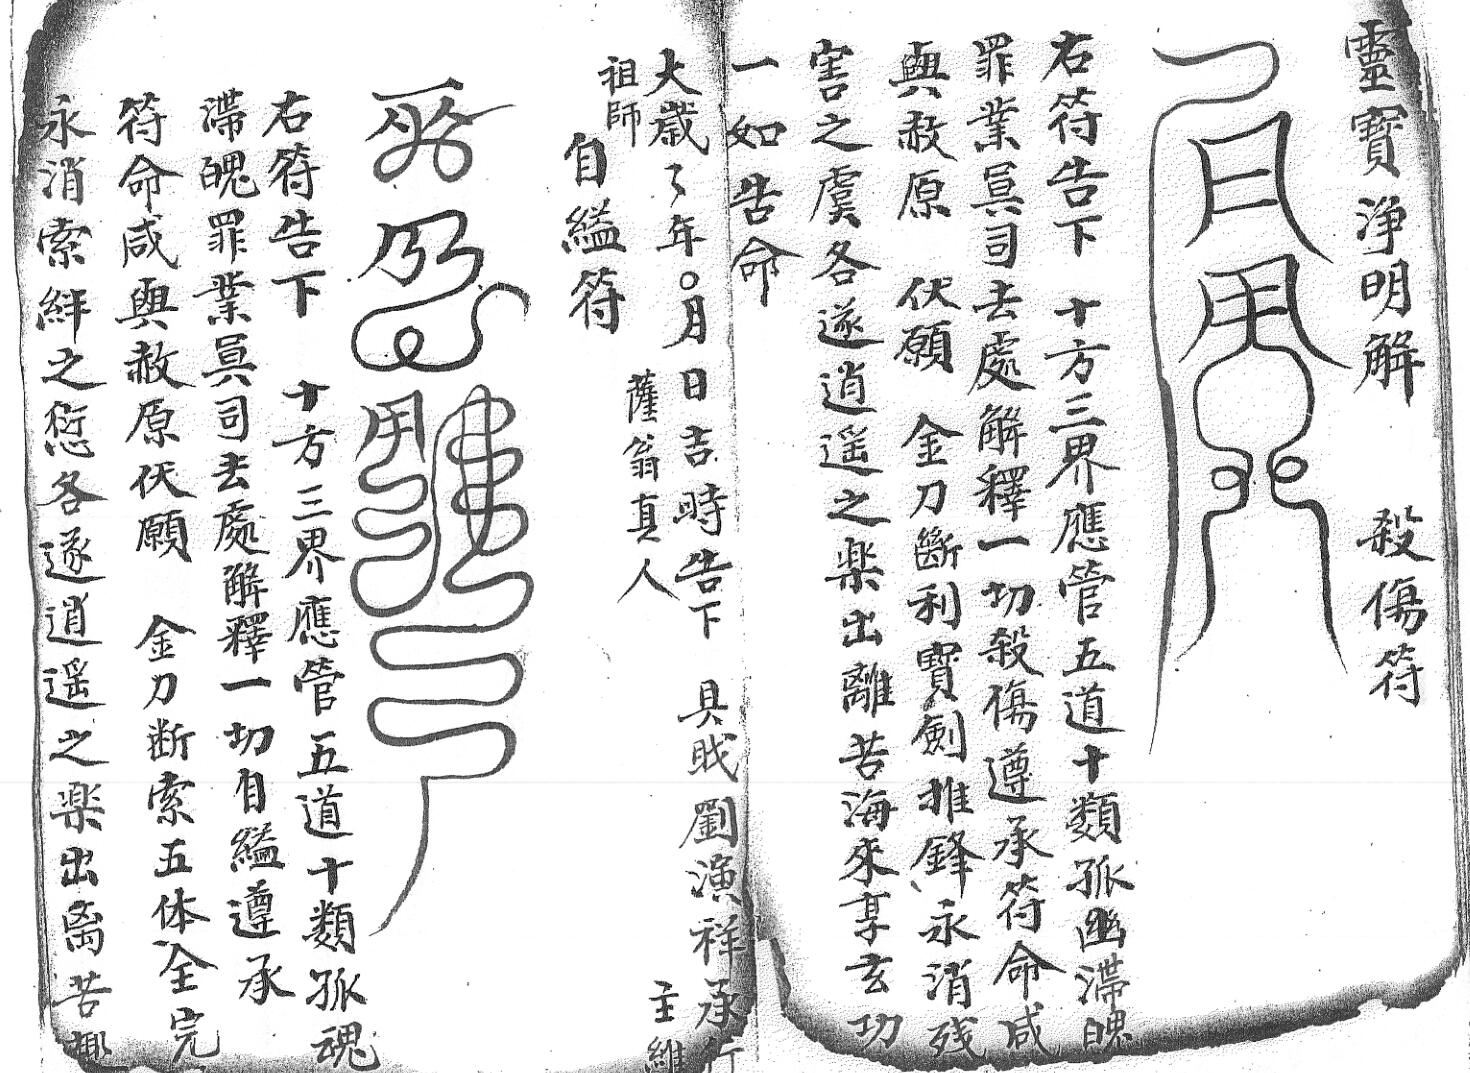 靈寶淨明解　殺傷符
右符告下　十方三界應管五道十類孤幽滯魄
罪業冥司去處解釋一切殺傷遵承符命咸
與赦原　伏願　金刀斷利寶劍摧鋒永消殘
害之虞各遂逍遥之楽出離苦海來享玄功
一如告命
大歲了々年〇月日吉時告下　具戝劉演祥承行
祖師　薩翁真人　主維
自縊符
右符告下　十方三界應管五道十類孤魂
滯魄罪業冥司去處解釋一切自縊遵承
符命咸與赦原伏願　金刀断索五体全完
永消索絆之愆各遂逍遥之楽出离苦趣